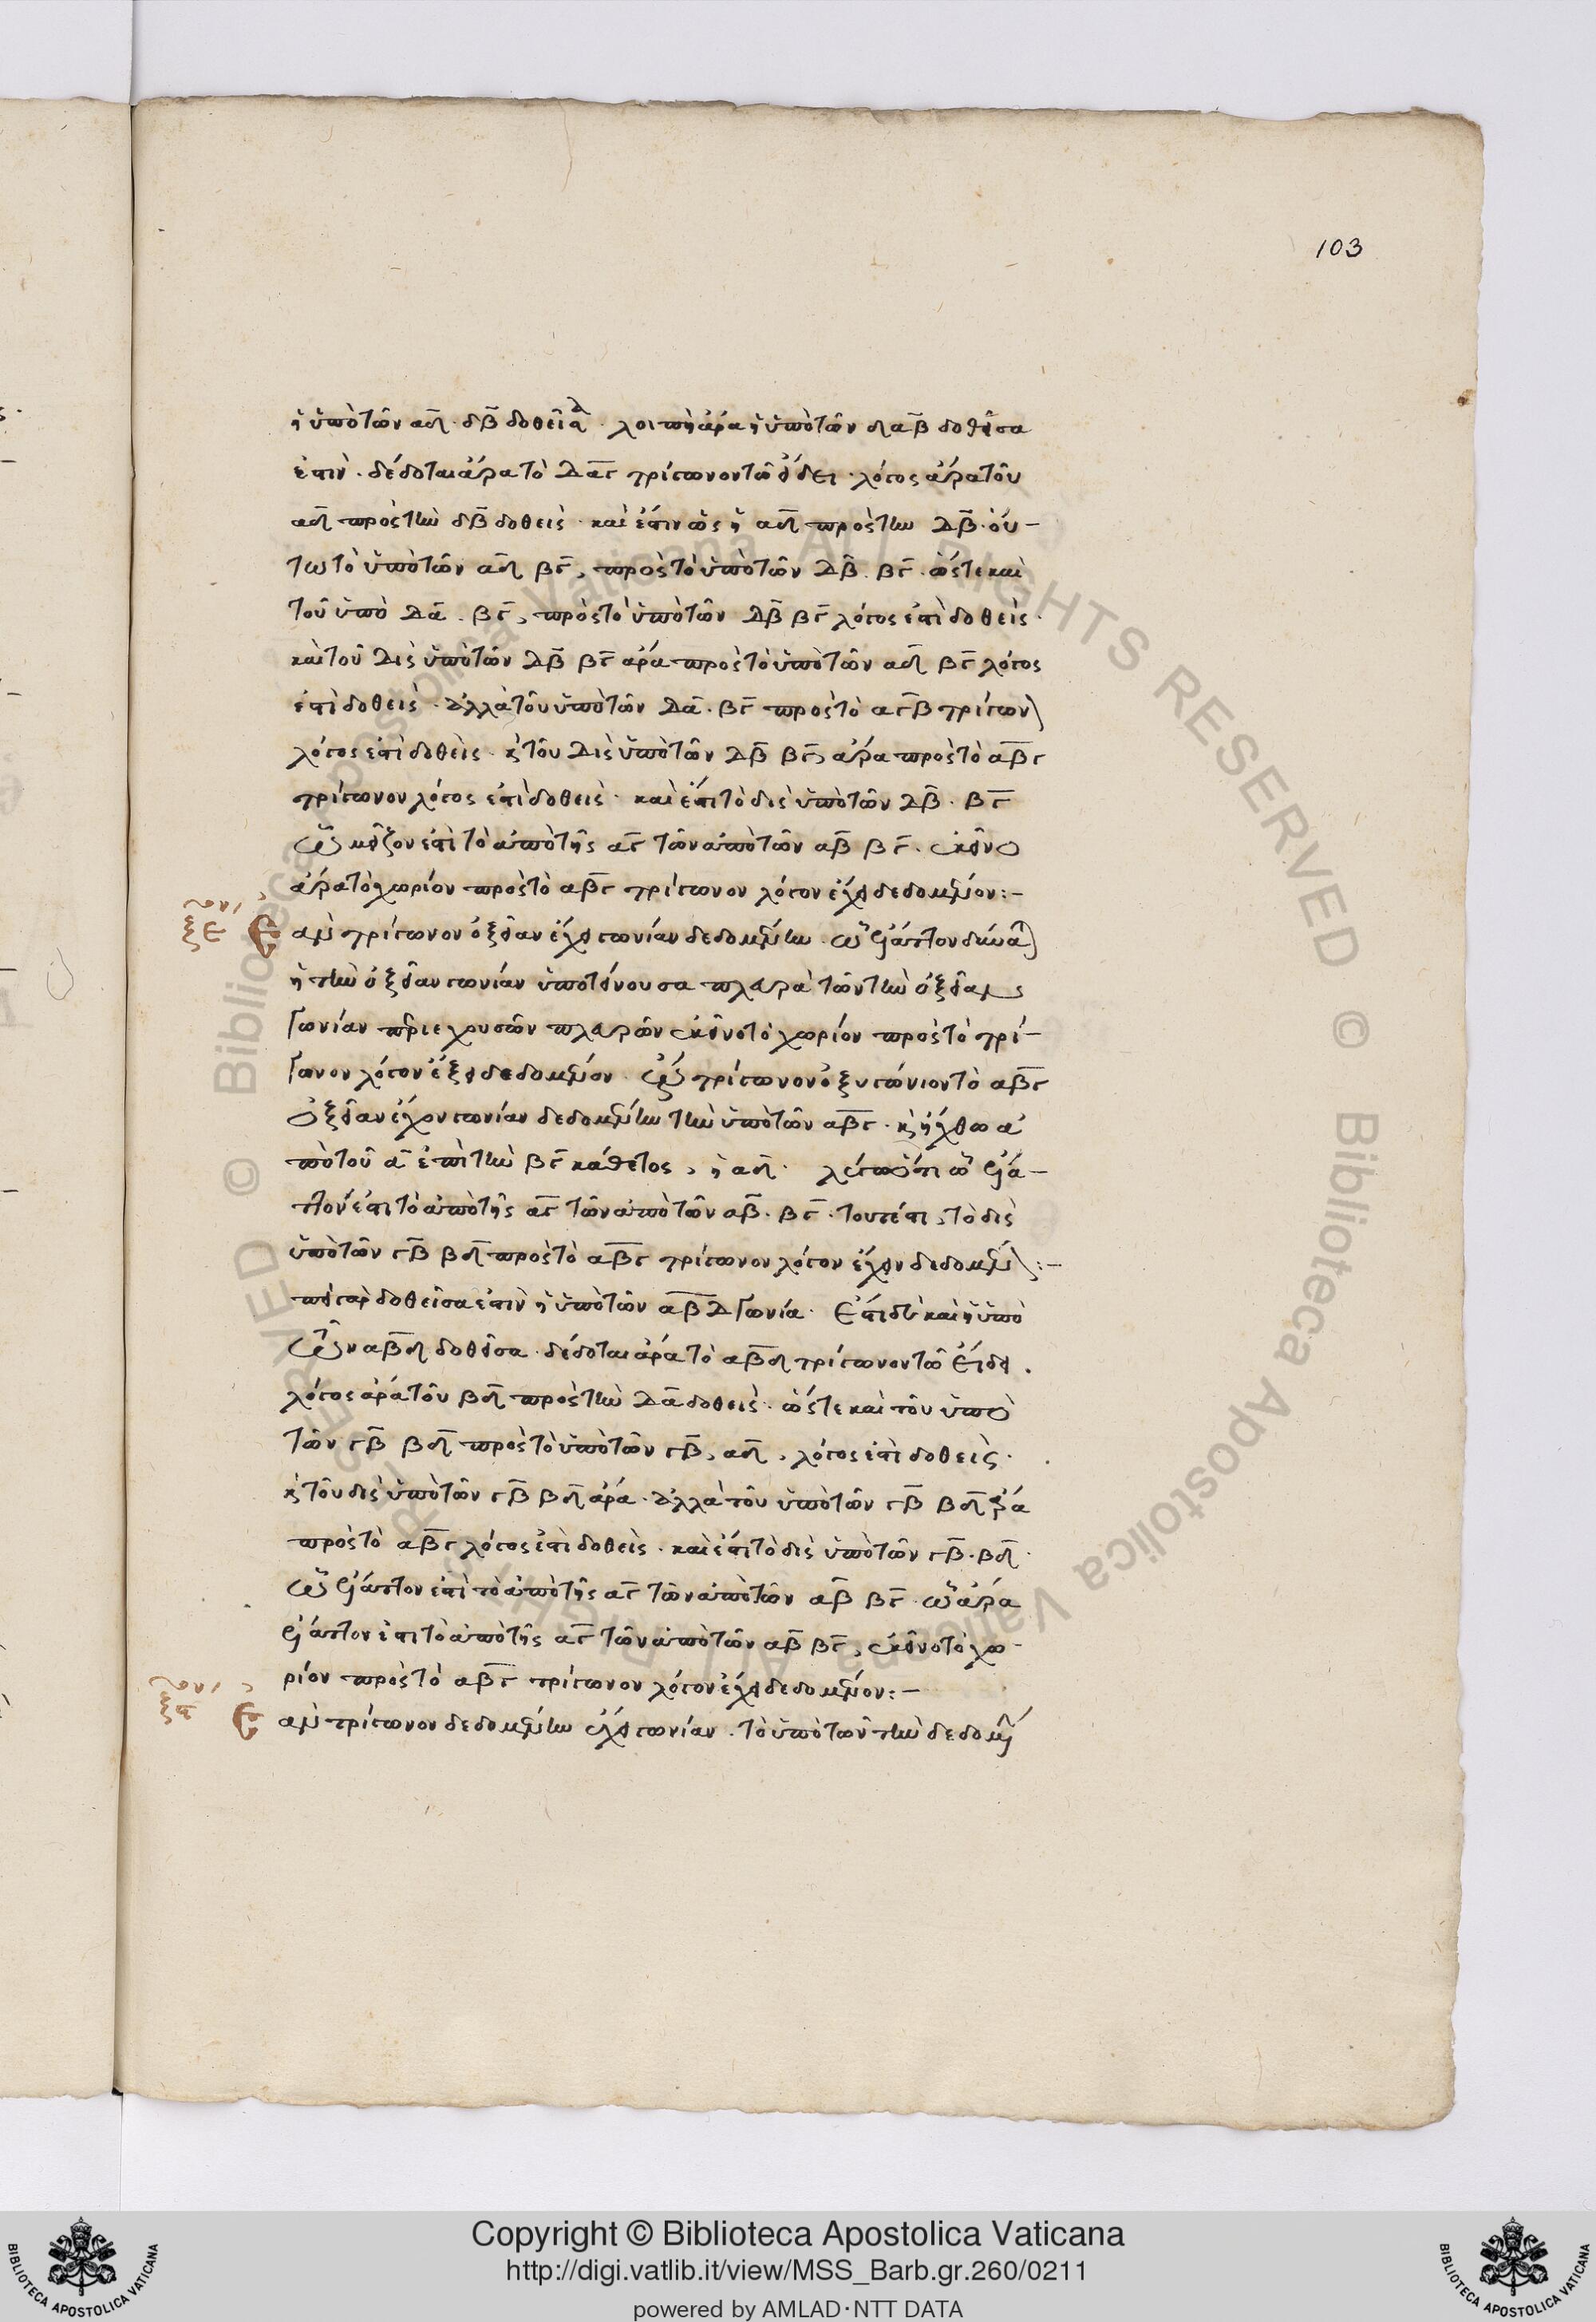 103
ἡ ὑπὸ τῶν αδ δβ δοθεῖσα. λοιπὴ ἄρα ἡ ὑπὸ τῶν δαβ δοθεῖσα
ἐστὶν. δέδοται ἄρα τὸ δαγ τρίγωνον τῷ εἴδει. λόγος ἄρα τοῦ
αδ πρὸς τὴν δβ δοθεὶς. καὶ ἔστιν ὡς ἡ αδ πρὸς τὴν δβ. οὕ-
τω τὸ ὑπὸ τῶν αδ βγ, πρὸς τὸ ὑπὸ τῶν δβ. βγ. ὥστε καὶ
τοῦ ὑπὸ δα. βγ, πρὸς τὸ ὑπὸ τῶν δβ βγ λόγος ἐστὶ δοθεὶς.
καὶ τοῦ δὶς ὑπὸ τῶν δβ βγ ἄρα πρὸς τὸ ὑπὸ τῶν αδ βγ λόγος
ἐστὶ δοθεὶς. ἀλλὰ τοῦ ὑπὸ τῶν δα. βγ πρὸς τὸ αγβ τρίγωνον
λόγος ἐστὶ δοθεὶς. κ τοῦ δὶς ὑπὸ τῶν δβ βγ, ἄρα πρὸς τὸ αβγ
τρίγωνον λόγος ἐστὶ δοθεὶς. καὶ ἔστι τὸ δὶς ὑπὸ τῶν δβ. βγ
ᾧ μεῖζον ἐστὶ τὸ ἀπὸ τῆς αγ τῶν ἀπὸ τῶν αβ βγ. ἐκεῖνο
ἄρα τὸ χωρίον πρὸς τὸ αβγ τρίγωνον λόγον ἔχει δεδομένον:-
ξε Ἐὰν τρίγωνον ὀξεῖαν ἔχει γωνίαν δεδομένην. ᾧ ἔλαττον δύναται
ἡ τὴν ὀξεῖαν γωνίαν ὑποτείνουσα πλευρὰ τῶν τὴν ὀξεῖαν
γωνίαν περιεχουσῶν πλευρῶν ἐκεῖνο τὸ χωρίον πρὸς τὸ τρί-
γωνον λόγον ἕξει δεδομένον. ἔστω τρίγωνον ὀξυγώνιον τὸ αβγ
ὀξεῖαν ἔχον γωνίαν δεδομένην τὴν ὑπὸ τῶν αβγ. κ ἤχθω ἀ
πὸ τοῦ α ἐπὶ τὴν βγ κάθετος, ἡ αδ. λέγω ὅτι ᾧ ἔλα-
ττον ἐστι τὸ ἀπὸ τῆς αγ τῶν ἀπὸ τῶν αβ. βγ. τουτέστι, τὸ δὶς
ὑπὸ τῶν γβ βδ πρὸς τὸ αβγ τρίγωνον λόγον ἔχειν δεδομένον:-
ἐπεὶ γὰρ δοθεῖσα ἐστὶν ἡ ὑπὸ τῶν αβδ γωνία. ἔστι δὲ καὶ ἡ ὑπὸ
τῶν αβδ δοθεῖσα. δέδοται ἄρα τὸ αβδ τρίγωνον τῷ εἴδει.
λόγος ἄρα τοῦ βδ πρὸς τὴν δα δοθεὶς. ὥστε καὶ τοῦ ὑπὸ
τῶν γβ βδ πρὸς τὸ ὑπὸ τῶν γβ, αδ, λόγος ἐστὶ δοθεὶς.
κ τοῦ δὶς ὑπὸ τῶν γβ βδ ἄρα. ἀλλὰ τοῦ ὑπὸ τῶν γβ βδ ἄρα
πρὸς τὸ αβγ λόγος ἐστὶ δοθεὶς. καὶ ἔστι τὸ δὶς ὑπὸ τῶν γβ. βδ.
ᾧ ἔλαττον ἐστὶ τὸ ἀπὸ τῆς αγ τῶν ἀπὸ τῶν αβ βγ. ᾧ ἄρα
ἔλαττον ἐστι τὸ ἀπὸ τῆς αγ τῶν ἀπὸ τῶν αβ βγ, ἐκεῖνο τὸ χω-
ρίον πρὸς τὸ αβγ τρίγωνον λόγον ἔχει δεδομένον:-
Ἐὰν τρίγωνον δεδομένην ἔχει γωνίαν. τὸ ὑπὸ τῶν τὴν δεδομέν
Copyright © Biblioteca Apostolica Vaticana
http://digi.vatlib.it/view/MSS_Barb.gr.260/0211
powered by AMLAD·NTT DATA
BIBLIOTECA APOSTOLICA VATICANA
BIBLIOTECA APOSTOLICA VATICANA